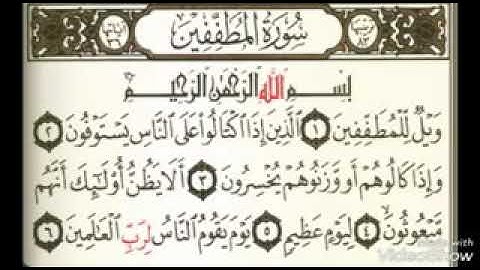 سُورَةُ الْمُطَفِّفِينَ
بِسْمِ اللَّهِ الرَّحْمَٰنِ الرَّحِيمِ
وَيْلٌ لِّلْمُطَفِّفِينَ ١ الَّذِينَ إِذَا اكْتَالُوا عَلَى النَّاسِ يَسْتَوْفُونَ ٢
وَإِذَا كَالُوهُمْ أَو وَّزَنُوهُمْ يُخْسِرُونَ ٣ أَلَا يَظُنُّ أُولَٰئِكَ أَنَّهُم
مَّبْعُوثُونَ ٤ لِيَوْمٍ عَظِيمٍ ٥ يَوْمَ يَقُومُ النَّاسُ لِرَبِّ الْعَالَمِينَ ٦
VideoShow